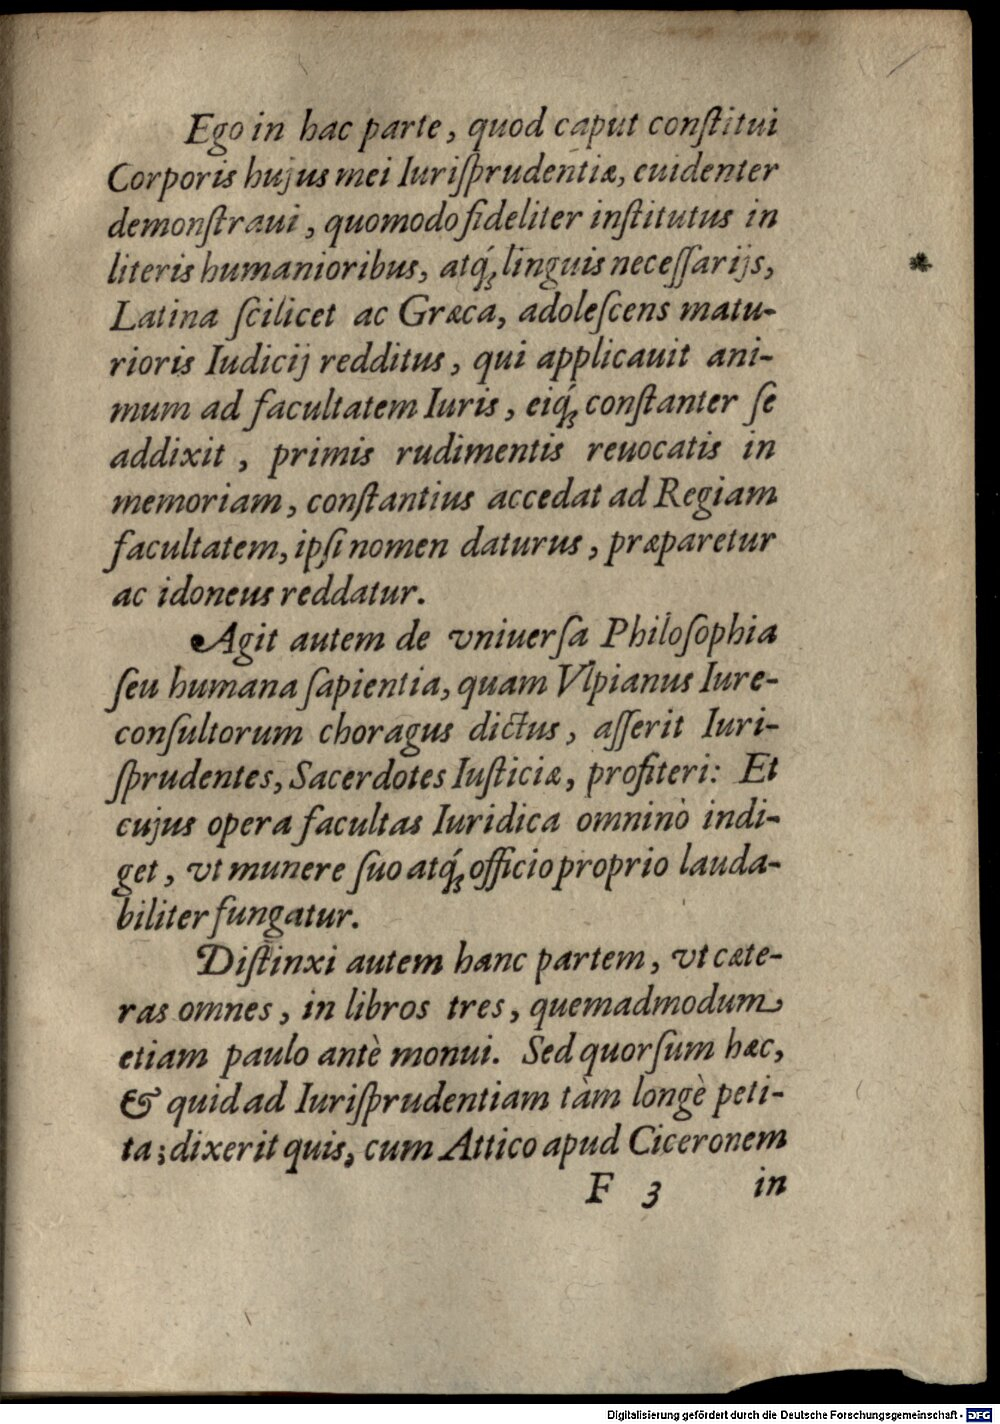 Ego in hac parte, quod caput conſtitui
Corporis hujus mei Iuriſprudentiæ, euidenter
demonſtraui, quomodo fideliter inſtitutus in
literis humanioribus, atq́ꝫ linguis neceſſarijs,
Latina ſcilicet ac Græca, adoleſcens matu-
rioris Iudicij redditus, qui applicauit ani-
mum ad facultatem Iuris, eiq́ꝫ conſtanter ſe
addixit, primis rudimentis reuocatis in
memoriam, conſtantius accedat ad Regiam
facultatem, ipſi nomen daturus, præparetur
ac idoneus reddatur.
Agit autem de vniuerſa Philoſophia
ſeu humana ſapientia, quam Vlpianus Iure-
conſultorum choragus dictus, aſſerit Iuri-
ſprudentes, Sacerdotes Iuſticiæ, profiteri: Et
cujus opera facultas Iuridica omninò indi-
get, vt munere ſuo atq́ꝫ officio proprio lauda-
biliter fungatur.
Diſtinxi autem hanc partem, vt cæte-
ras omnes, in libros tres, quemadmodum
etiam paulo antè monui. Sed quorſum hæc,
& quid ad Iuriſprudentiam tàm longè peti-
ta; dixerit quis, cum Attico apud Ciceronem
F 3 in
Digitalisierung gefördert durch die Deutsche Forschungsgemeinschaft - DFG